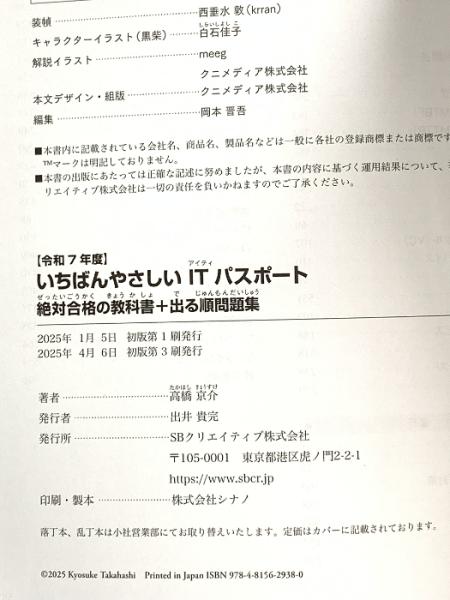 装幀 西垂水 敦(krran)
しらいしよしこ
キャラクターイラスト(黒柴) 白石佳子
解説イラスト meeg
クニメディア株式会社
本文デザイン・組版 クニメディア株式会社
編集 岡本 晋吾
■本書内に記載されている会社名、商品名、製品名などは一般に各社の登録商標または商標です
™マークは明記しておりません。
■本書の出版にあたっては正確な記述に努めましたが、本書の内容に基づく運用結果について、
リエイティブ株式会社は一切の責任を負いかねますのでご了承ください。
【令和7年度】
アイティ
いちばんやさしい ITパスポート
ぜったいごうかく きょうかしょ で じゅんもんだいしゅう
絶対合格の教科書+出る順問題集
2025年 1月 5日 初版第1刷発行
2025年 4月 6日 初版第3刷発行
たかはし きょうすけ
著者 高橋 京介
発行者 出井 貴完
発行所 SBクリエイティブ株式会社
〒105-0001 東京都港区虎ノ門2-2-1
https://www.sbcr.jp
印刷・製本 株式会社シナノ
落丁本、乱丁本は小社営業部にてお取り替えいたします。定価はカバーに記載されております。
©2025 Kyosuke Takahashi Printed in Japan ISBN 978-4-8156-2938-0